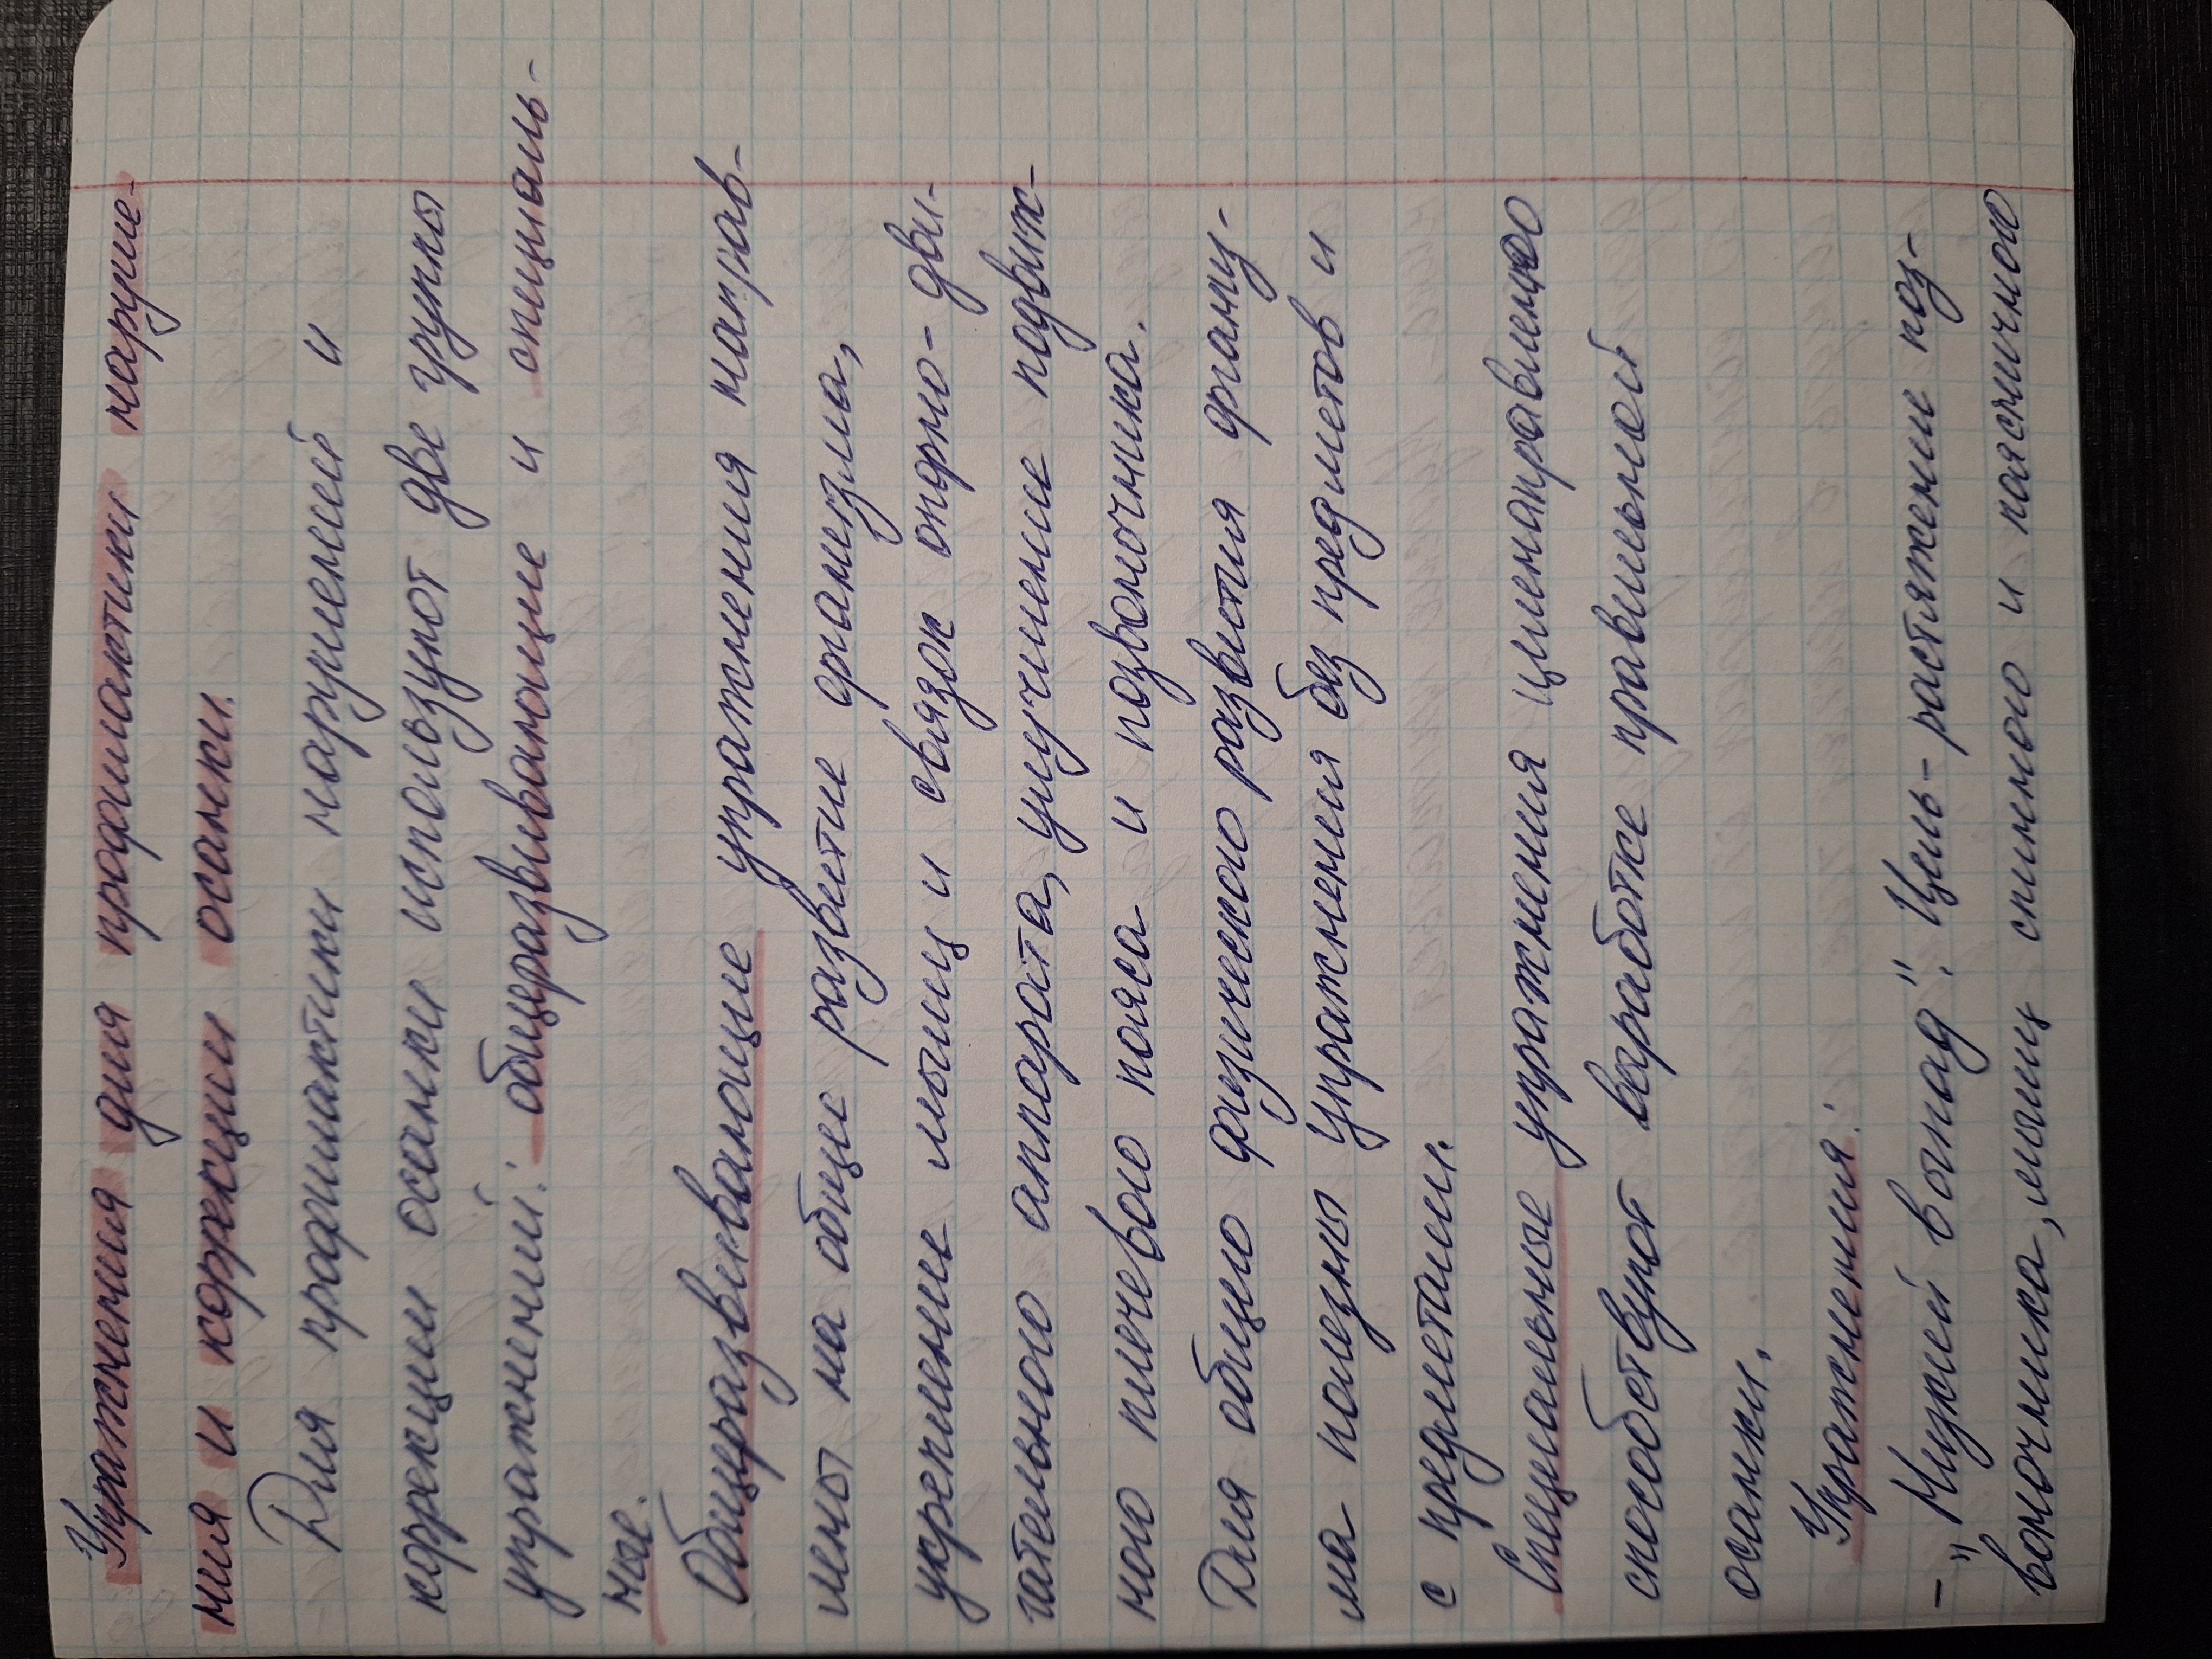 Упражнения для профилактики наруше-
ния и коррекции осанки.
Для профилактики нарушений и
коррекции осанки используют две групы
упражнений: общеразвивающие и специаль-
ные.
Общеразвивающие упражнения направ-
лены на общее развитие организма,
укрепление мышц и связок опорно-дви-
гательного аппарата, улучшение подвиж-
ного плечевого пояса и позвоночника.
Для общего физического развития органу-
ма полезны упражнения без предметов и
с предметами.
Специальные упражнения целенаправленно
способствуют выработке правильной
осанки.
Упражнения:
- "Низкий выпад". Цель - растяжение поз-
воночника, мышц спинного и поясничного